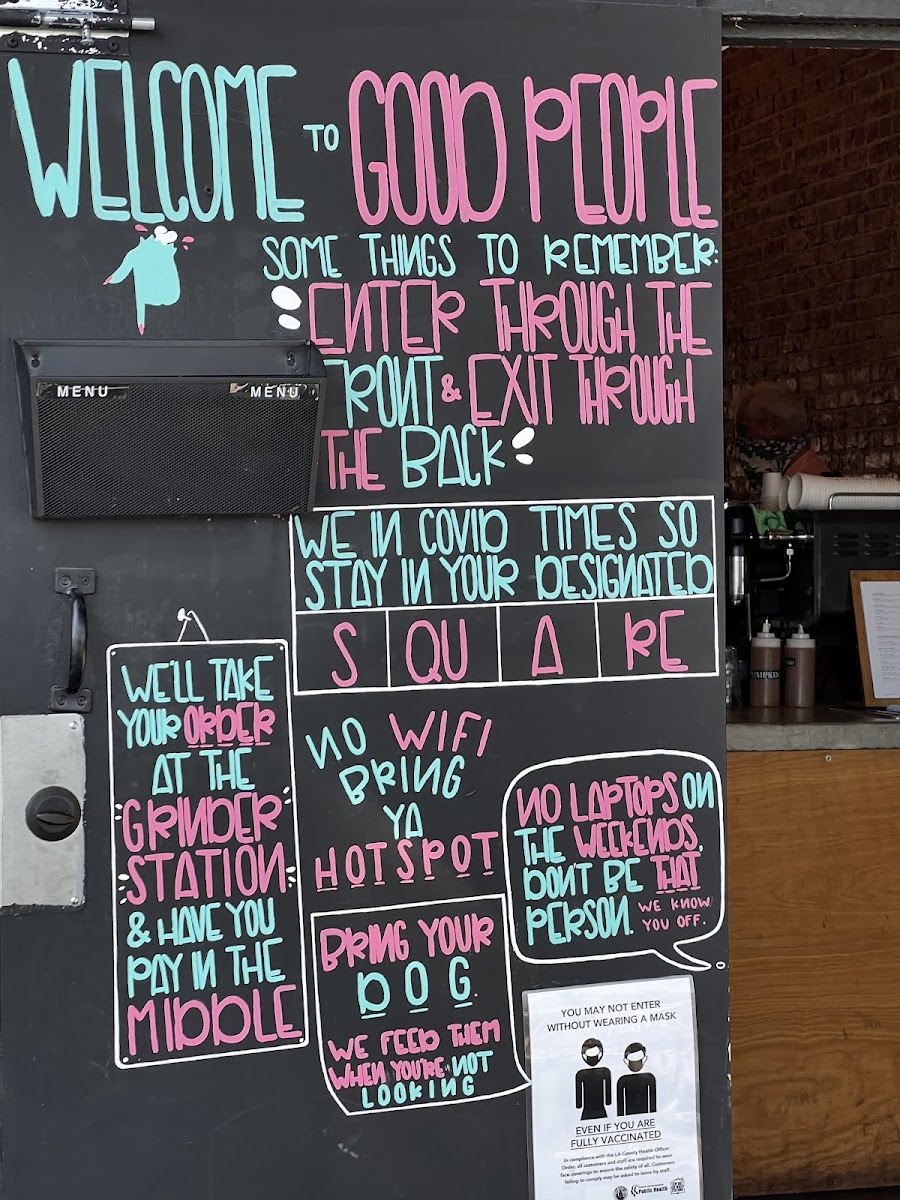 WELCOME TO GOOD PEOPLE
SOME THINGS TO REMEMBER:
ENTER THROUGH THE
FRONT & EXIT THROUGH
THE BACK
MENU MENU
WE IN COVID TIMES SO
STAY IN YOUR DESIGNATED
S QU A RE
WE'LL TAKE
YOUR ORDER
AT THE
GRINDER
STATION
& HAVE YOU
PAY IN THE
MIDDLE
NO WIFI
BRING
YA
HOTSPOT
NO LAPTOPS ON
THE WEEKENDS.
DON'T BE THAT
PERSON. WE KNOW
YOU OFF.
BRING YOUR
DOG.
WE FEED THEM
WHEN YOU'RE NOT
LOOKING
YOU MAY NOT ENTER
WITHOUT WEARING A MASK
EVEN IF YOU ARE
FULLY VACCINATED
In compliance with the LA County Health Officer
Order, all customers and staff are required to wear
face coverings to ensure the safety of all. Customers
failing to comply may be asked to leave by staff.
Public Health